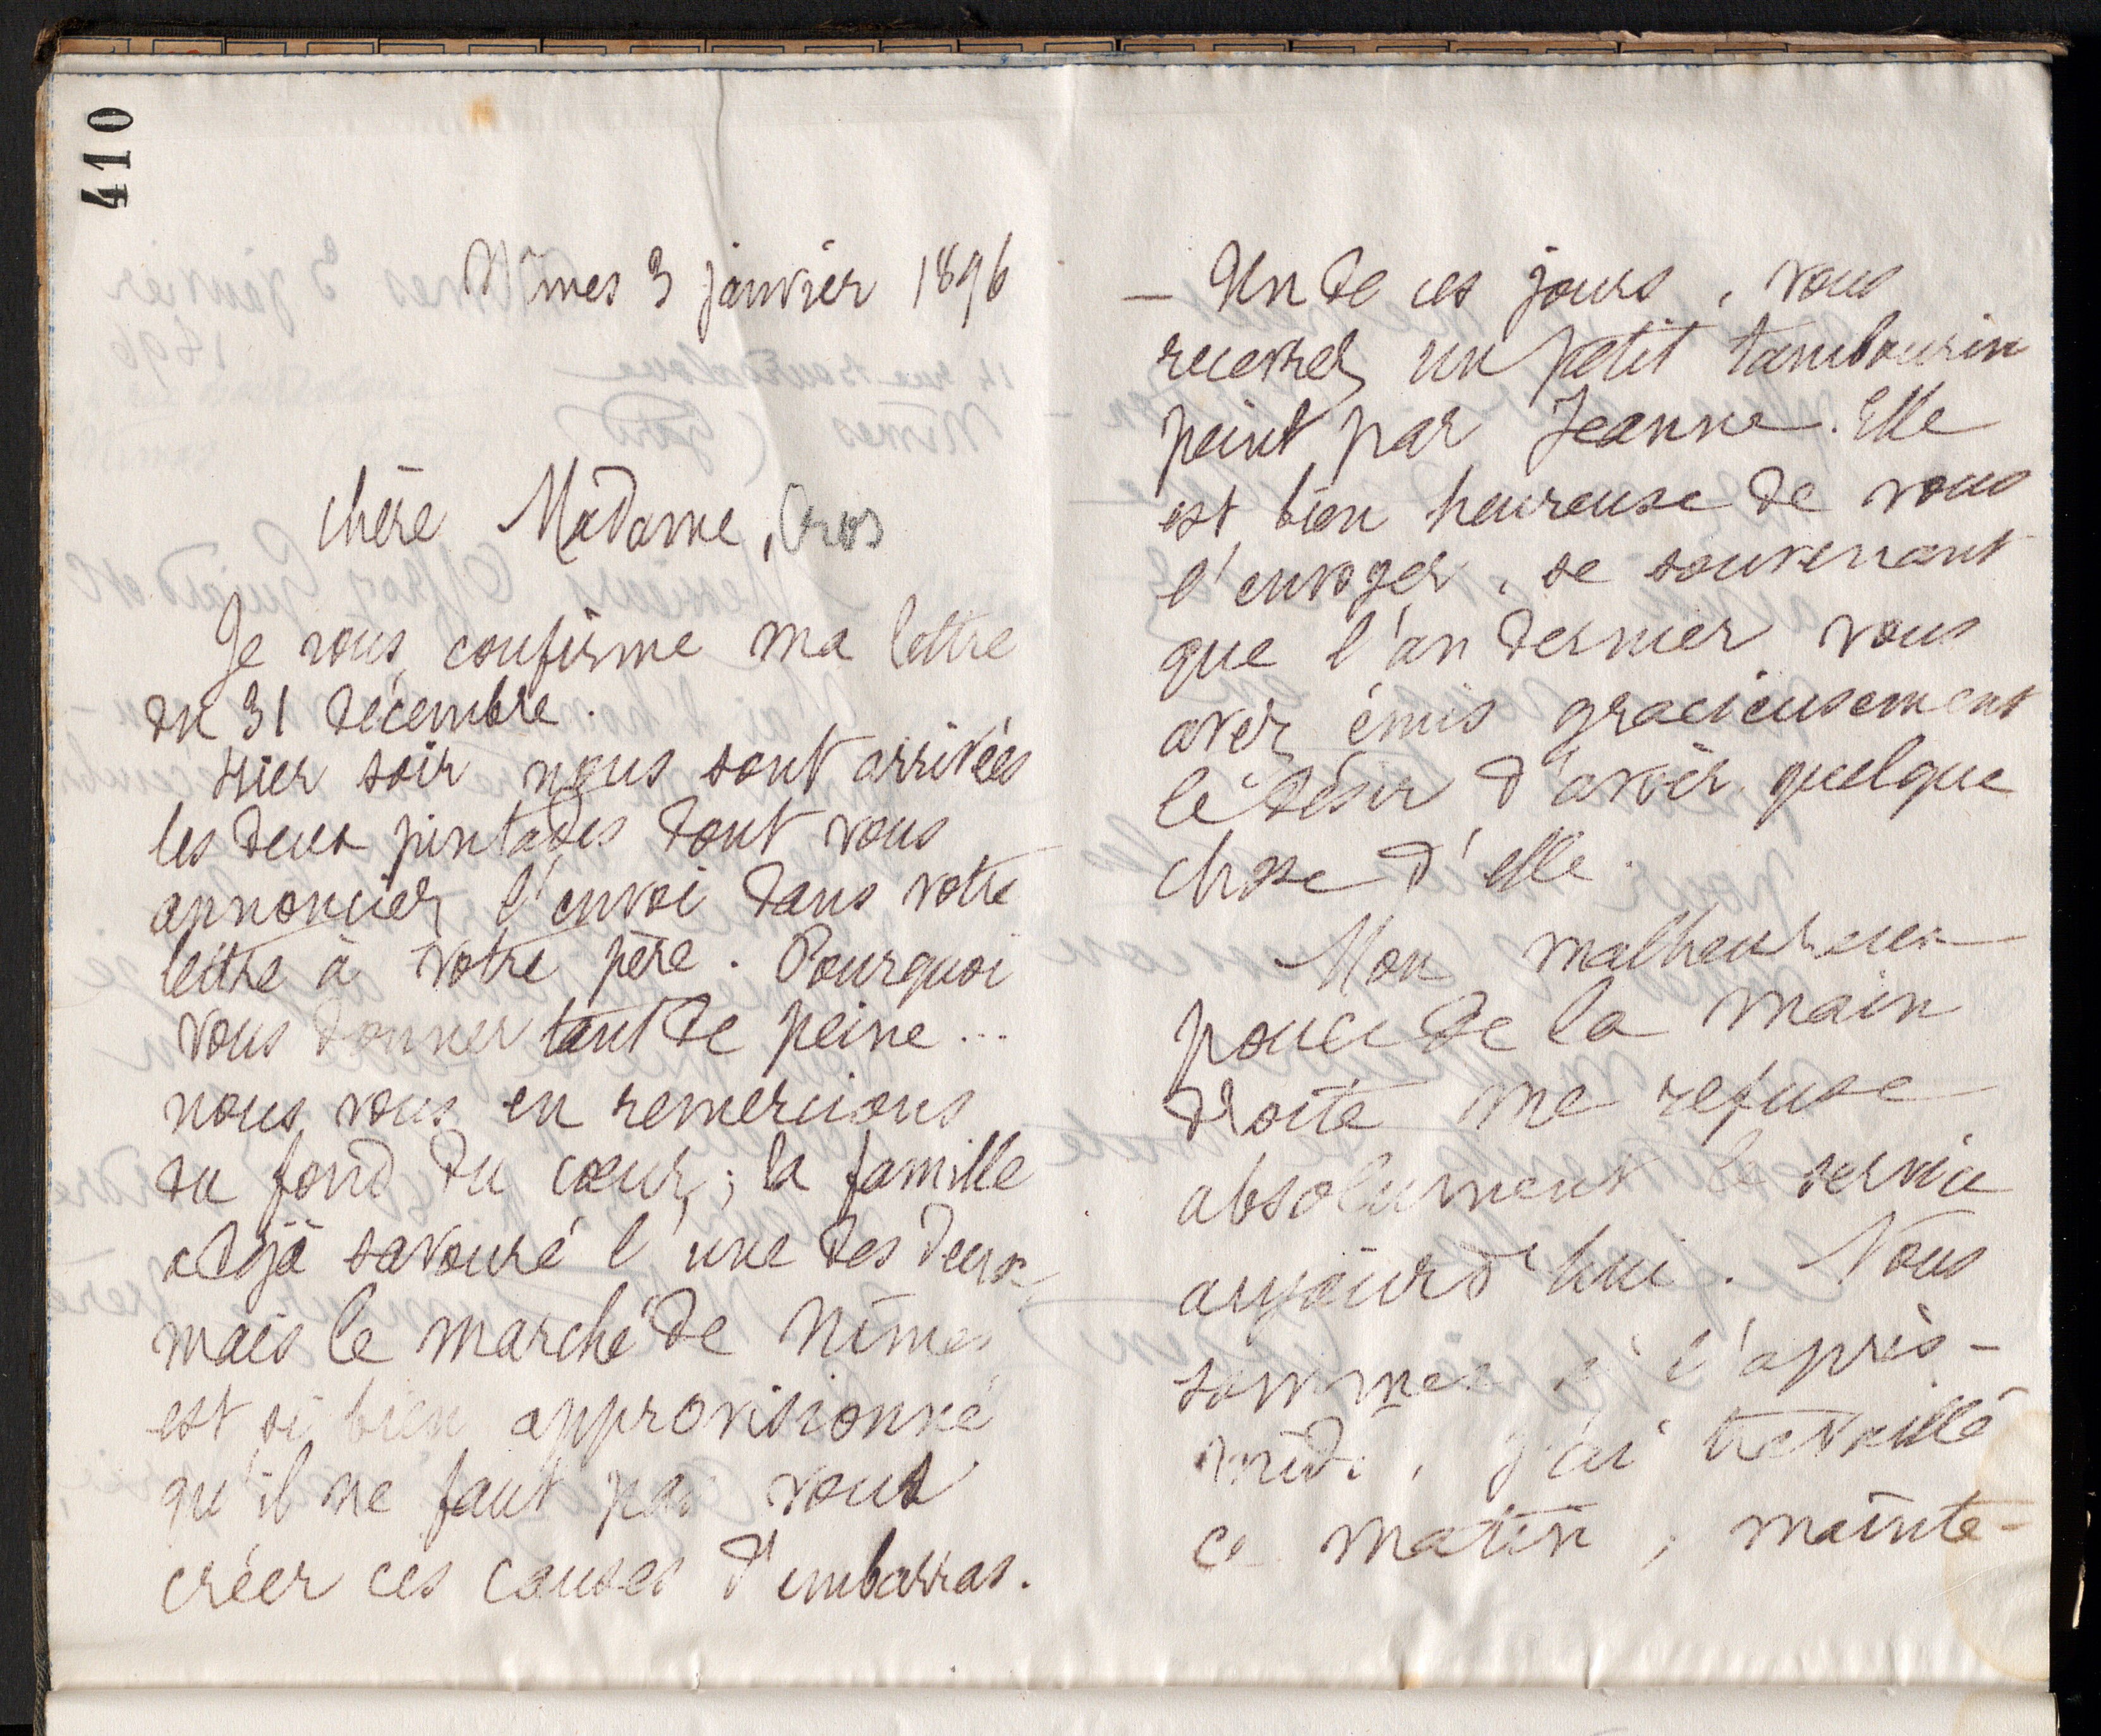 410
Nîmes 3 janvier 1896
Chère Madame, Cros
Je vous confirme ma lettre
du 31 décembre.
Hier soir nous sont arrivées
les deux pintades dont vous
annonciez l'envoi dans votre
lettre à votre père. Pourquoi
vous donner tant de peine...
nous vous en remercions
du fond du cœur ; la famille
a déjà savouré l'une des deux,
mais le marché de Nîmes
est si bien approvisionné
qu'il ne faut pas vous
créer ces causes d'embarras.
— Un de ces jours, vous
recevrez un petit tambourin
peint par Jeanne. Elle
est bien heureuse de vous
l'envoyer, se souvenant
que l'an dernier vous
avez émis gracieusement
le désir d'avoir quelque
chose d'elle.
Mon malheureux
pouce de la main
droite me refuse
absolument le service
aujourd'hui. Nous
sommes à l'après-
midi, j'ai travaillé
ce matin ; mainte-